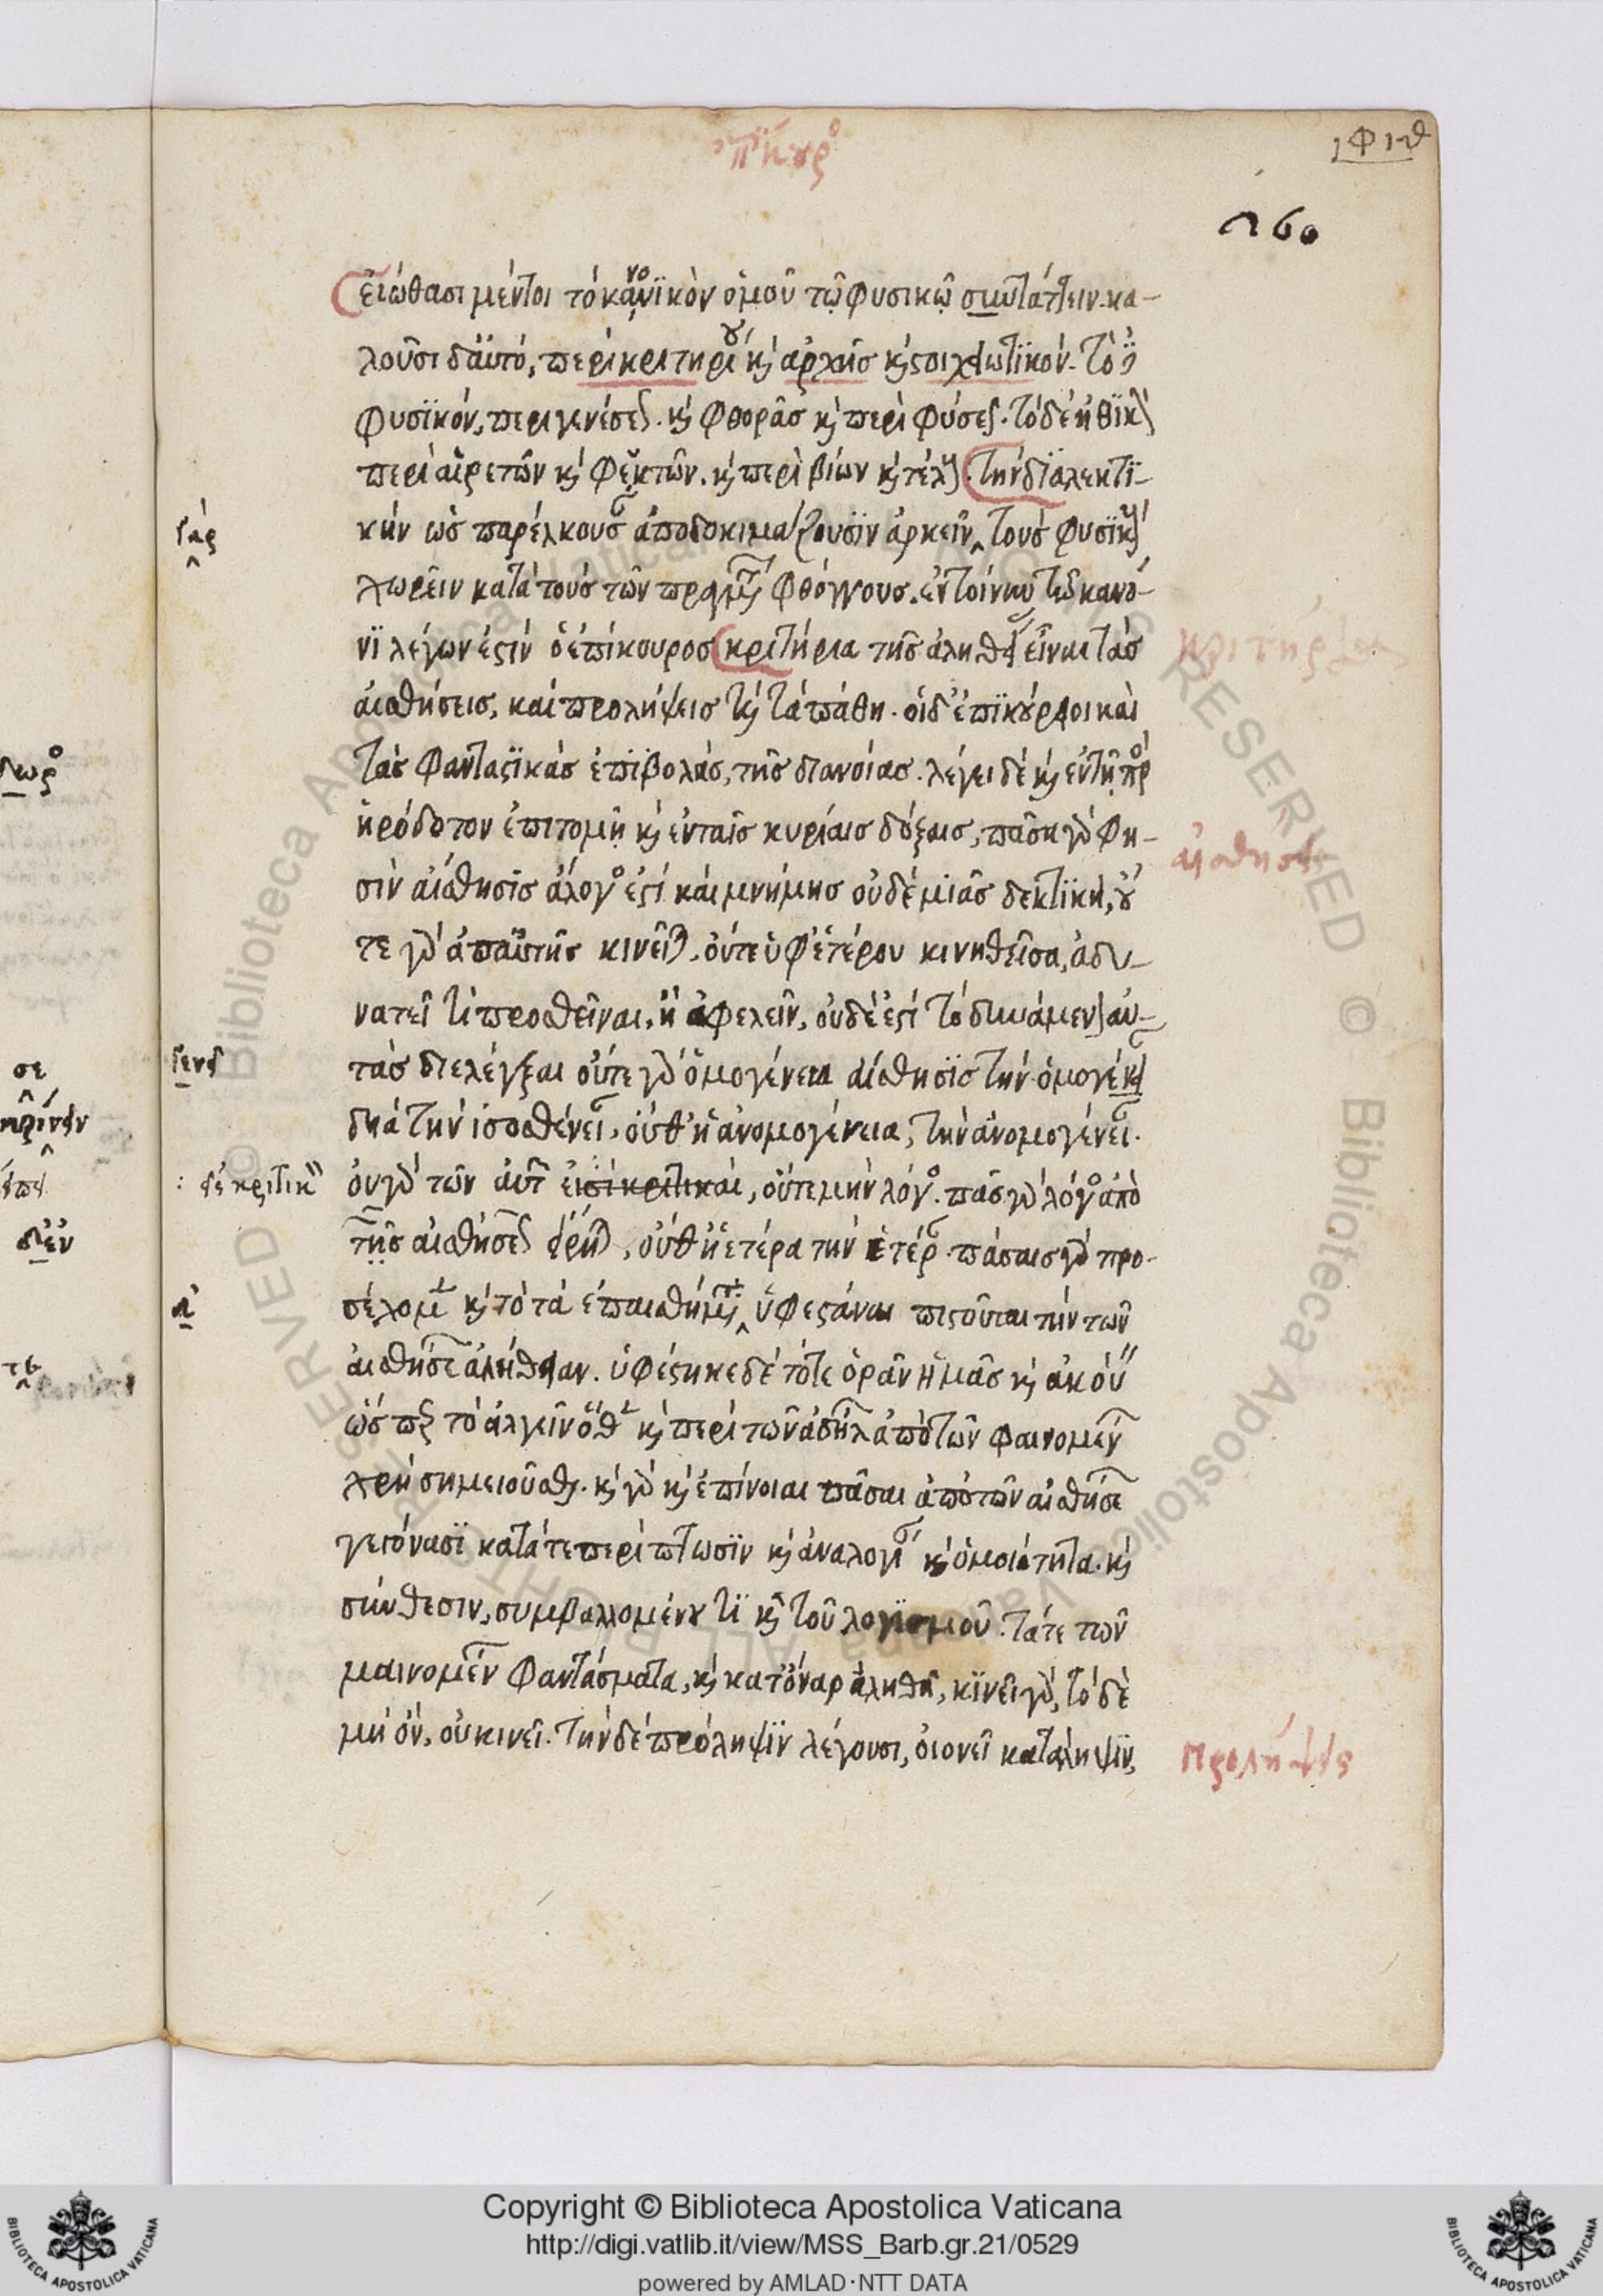 ἐπίκουρος
,φιθ
260
εἰώθασι μέντοι τὸ κανονικὸν ὁμοῦ τῷ φυσικῷ συντάττειν· κα-
λοῦσι δ' αὐτό, περὶ κριτηρίου καὶ ἀρχῆς καὶ στοιχειωτικόν· τὸ δὲ
φυσικόν, περὶ γενέσεως καὶ φθορᾶς καὶ περὶ φύσεως· τὸ δὲ ἠθικὸν
περὶ αἱρετῶν καὶ φευκτῶν. καὶ περὶ βίων καὶ τέλους· τὴν διαλεκτι-
κὴν ὡς παρέλκουσαν ἀποδοκιμάζουσιν ἀρκεῖν τοὺς φυσικοὺς
γὰρ
χωρεῖν κατὰ τοὺς τῶν πραγμάτων φθόγγους. ἐν τοίνυν τῷ κανό-
νι λέγων ἐστὶν ὁ ἐπίκουρος κριτήρια τῆς ἀληθείας εἶναι τὰς
κριτήριον
αἰσθήσεις, καὶ προλήψεις καὶ τὰ πάθη· οἱ δ' ἐπικούρειοι καὶ
τὰς φανταστικὰς ἐπιβολὰς, τῆς διανοίας. λέγει δὲ καὶ ἐν τῇ πρὸς
ἡρόδοτον ἐπιτομῇ καὶ ἐν ταῖς κυρίαις δόξαις, πᾶσα γὰρ φη-
αἴσθησις
σὶν αἴσθησις ἄλογος ἐστὶ καὶ μνήμης οὐδὲ μιᾶς δεκτικὴ, οὔ
τε γὰρ ἀπ' αὐτῆς κινεῖται, οὔτε ὑφ' ἑτέρου κινηθεῖσα, ἀδυ-
νατεῖ τι προσθεῖναι, ἢ ἀφελεῖν, οὐδὲ ἐστὶ τὸ δυνάμενον αὐ-
τὰς διελέγξαι οὔτε γὰρ ὁμογένεια αἴσθησις τὴν ὁμογένειαν
διὰ τὴν ἰσοσθένειαν, οὔθ' ἡ ἀνομογένεια, τὴν ἀνομογένειαν·
οὐ γὰρ τῶν αὐτῶν εἰσὶ κριτικαί, οὔτε μὴν λόγος· πᾶς γὰρ λόγος ἀπὸ
τῆς αἰσθήσεως ἤρτηται, οὔθ' ἡ ἑτέρα τὴν ἑτέραν· πάσαις γὰρ προ-
σέχομεν καὶ τὸ τὰ ἐπαισθήματα ὑφεστάναι πιστοῦται τὴν τῶν
αἰσθήσεων ἀλήθειαν. ὑφέστηκε δὲ τότε ὁρᾶν ἡμᾶς καὶ ἀκούειν
ὥσπερ τὸ ἀλγεῖν ὅθεν καὶ περὶ τῶν ἀδήλων ἀπὸ τῶν φαινομένων
χρὴ σημειοῦσθαι. καὶ γὰρ καὶ ἐπίνοιαι πᾶσαι ἀπὸ τῶν αἰσθήσεων
γεγόνασι κατά τε περίπτωσιν καὶ ἀναλογίαν καὶ ὁμοιότητα. καὶ
σύνθεσιν, συμβαλλομένου τι καὶ τοῦ λογισμοῦ. τά τε τῶν
μαινομένων φαντάσματα, καὶ κατ' ὄναρ ἀληθῆ, κινεῖ γὰρ, τὸ δὲ
μὴ ὂν, οὐ κινεῖ. τὴν δὲ πρόληψιν λέγουσι, οἱονεὶ κατάληψιν,
πρόληψις
Copyright © Biblioteca Apostolica Vaticana
http://digi.vatlib.it/view/MSS_Barb.gr.21/0529
powered by AMLAD·NTT DATA